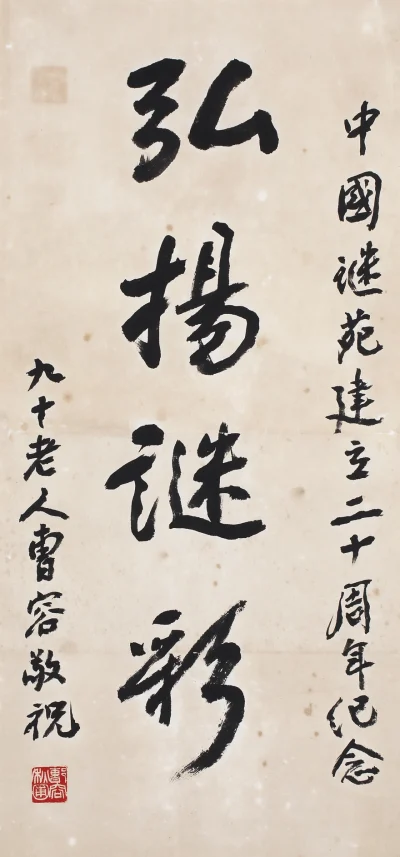 中國謎苑建立二十周年纪念
弘揚謎彩
九十老人曹容敬祝